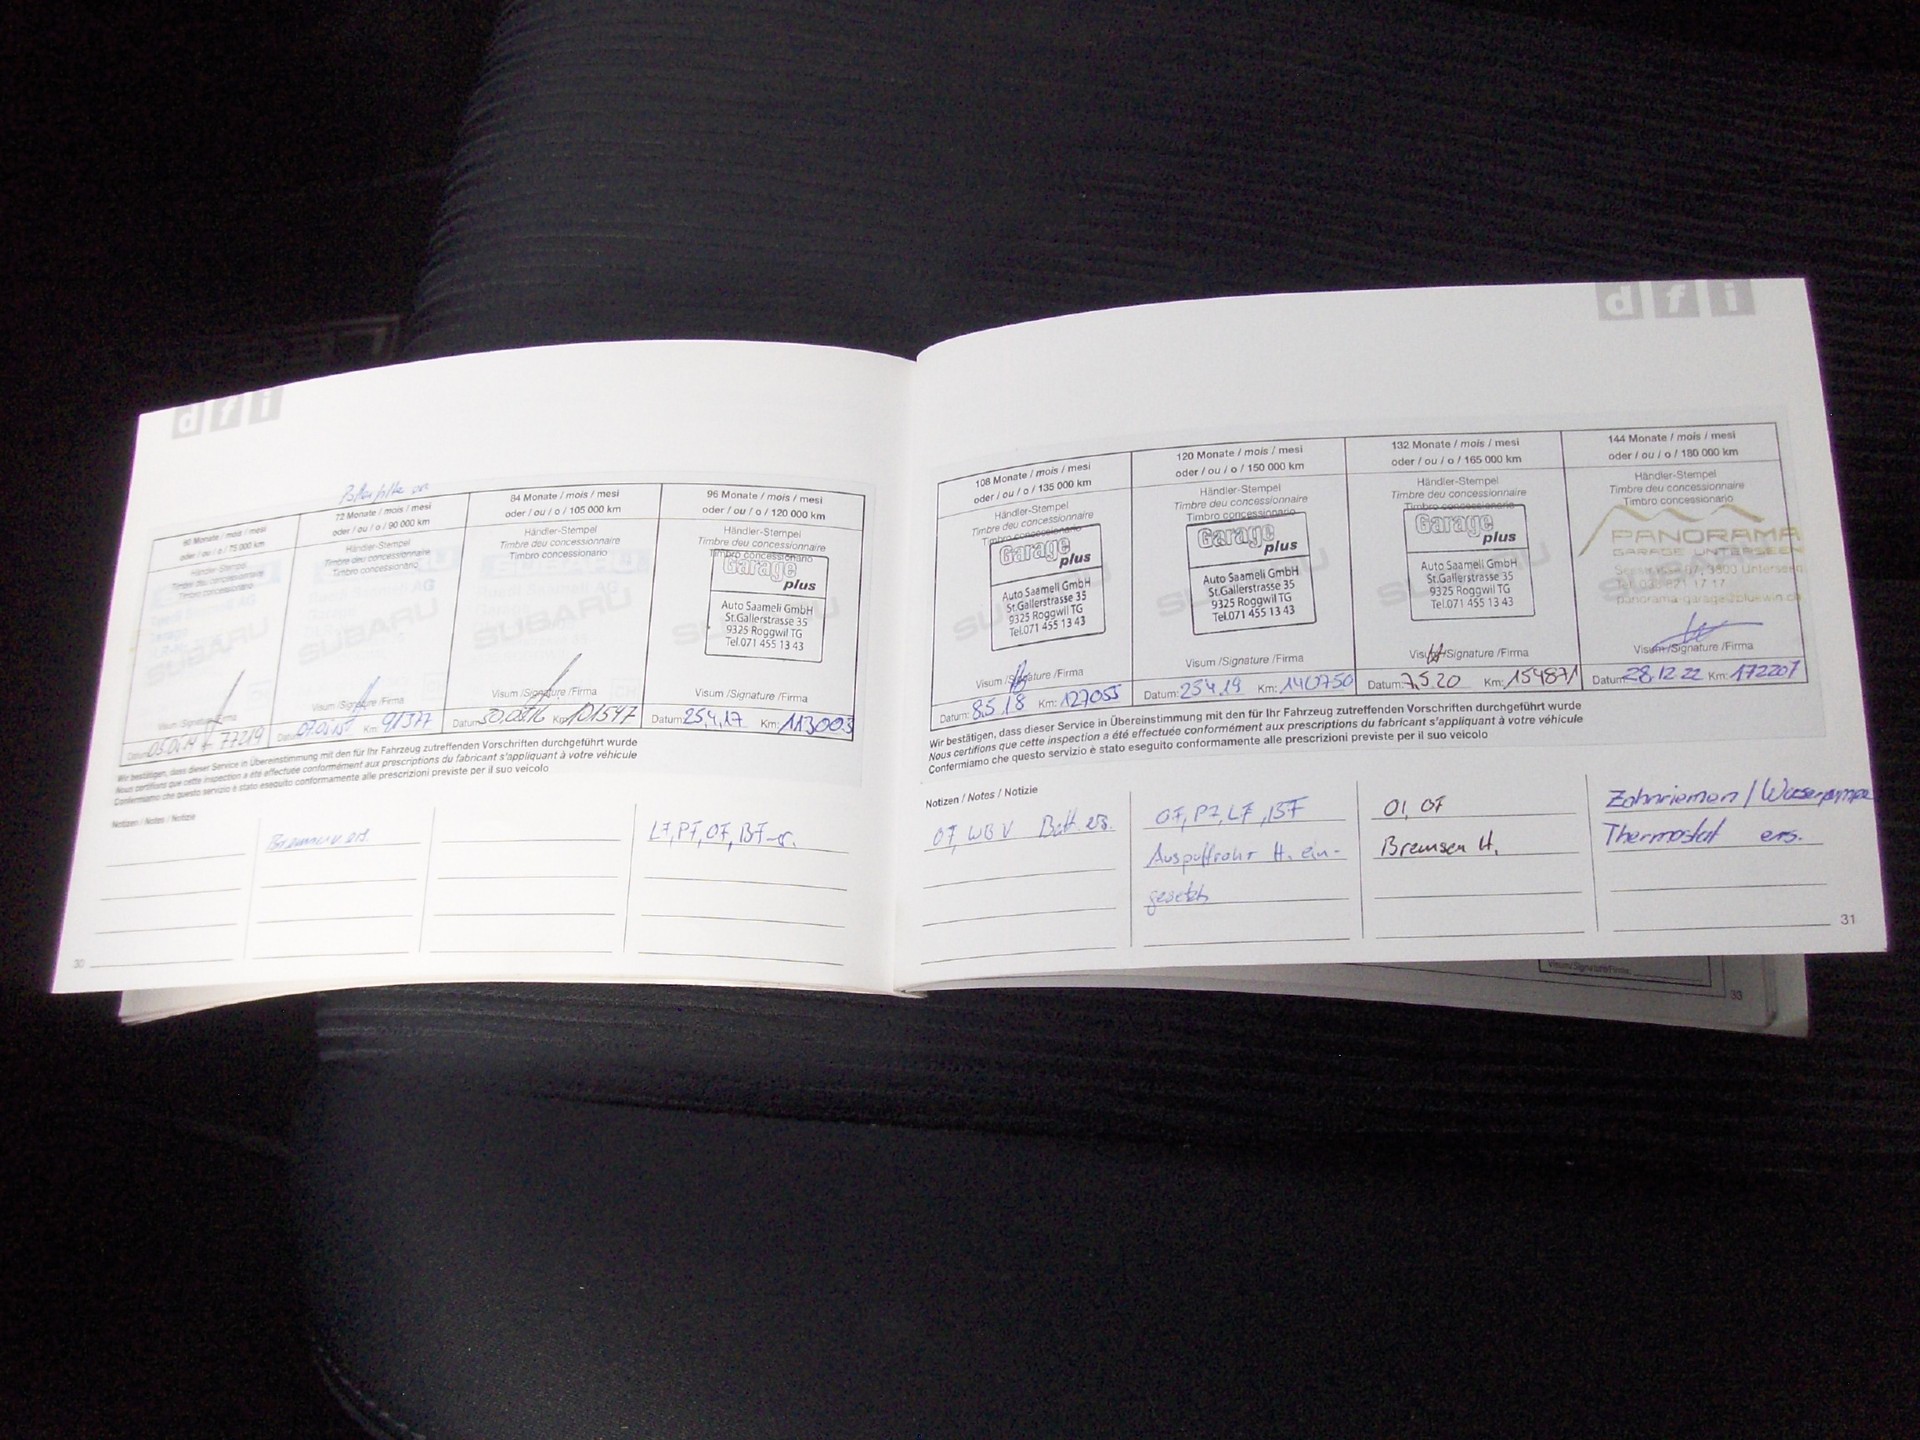 dfi
60 Monate / mois / mesi
oder / ou / o / 75 000 km
Händler-Stempel
Timbre deu concessionnaire
Timbro concessionario
SUBARU
Visum /Signature /Firma
Datum: 77219
72 Monate / mois / mesi
oder / ou / o / 90 000 km
Händler-Stempel
Timbre deu concessionnaire
Timbro concessionario
SUBARU
SUBARU
Visum /Signature /Firma
Datum: Km: 91377
84 Monate / mois / mesi
oder / ou / o / 105 000 km
Händler-Stempel
Timbre deu concessionnaire
Timbro concessionario
SUBARU
SUBARU
Visum /Signature /Firma
Datum: 30.05.16 Km: 101547
96 Monate / mois / mesi
oder / ou / o / 120 000 km
Händler-Stempel
Timbre deu concessionnaire
Timbro concessionario
Garage
plus
Auto Saameli GmbH
St.Gallerstrasse 35
9325 Roggwil TG
Tel.071 455 13 43
Visum /Signature /Firma
Datum: 25.4.17 Km: 113003
Wir bestätigen, dass dieser Service in Übereinstimmung mit den für Ihr Fahrzeug zutreffenden Vorschriften durchgeführt wurde
Nous certifions que cette inspection a été effectuée conformément aux prescriptions du fabricant s'appliquant à votre véhicule
Confermiamo che questo servizio è stato eseguito conformamente alle prescrizioni previste per il suo veicolo
Notizen / Notes / Notizie
LF, PF, OF, BF
30
dfi
108 Monate / mois / mesi
oder / ou / o / 135 000 km
Händler-Stempel
Timbre deu concessionnaire
Timbro concessionario
Garage
plus
Auto Saameli GmbH
St.Gallerstrasse 35
9325 Roggwil TG
Tel.071 455 13 43
SUBARU
Visum /Signature /Firma
Datum: 8.5.18 Km: 127055
120 Monate / mois / mesi
oder / ou / o / 150 000 km
Händler-Stempel
Timbre deu concessionnaire
Timbro concessionario
Garage
plus
Auto Saameli GmbH
St.Gallerstrasse 35
9325 Roggwil TG
Tel.071 455 13 43
Visum /Signature /Firma
Datum: 25.4.19 Km: 140750
132 Monate / mois / mesi
oder / ou / o / 165 000 km
Händler-Stempel
Timbre deu concessionnaire
Timbro concessionario
Garage
plus
Auto Saameli GmbH
St.Gallerstrasse 35
9325 Roggwil TG
Tel.071 455 13 43
Visum /Signature /Firma
Datum: 7.5.20 Km: 154871
144 Monate / mois / mesi
oder / ou / o / 180 000 km
Händler-Stempel
Timbre deu concessionnaire
Timbro concessionario
PANORAMA
GARAGE UNTERSEEN
3800 Unterseen
panorama-garage@bluewin.ch
Visum /Signature /Firma
Datum: 28.12.22 Km: 172201
Wir bestätigen, dass dieser Service in Übereinstimmung mit den für Ihr Fahrzeug zutreffenden Vorschriften durchgeführt wurde
Nous certifions que cette inspection a été effectuée conformément aux prescriptions du fabricant s'appliquant à votre véhicule
Confermiamo che questo servizio è stato eseguito conformamente alle prescrizioni previste per il suo veicolo
Notizen / Notes / Notizie
OF, WBV Batt. ers.
OF, PF, LF, BF
Auspuffrohr H. ein-
gesetzt
Öl, OF
Bremsen H.
Zahnriemen / Wasserpumpe
Thermostat ers.
31
Visum/Signature/Firma:
33